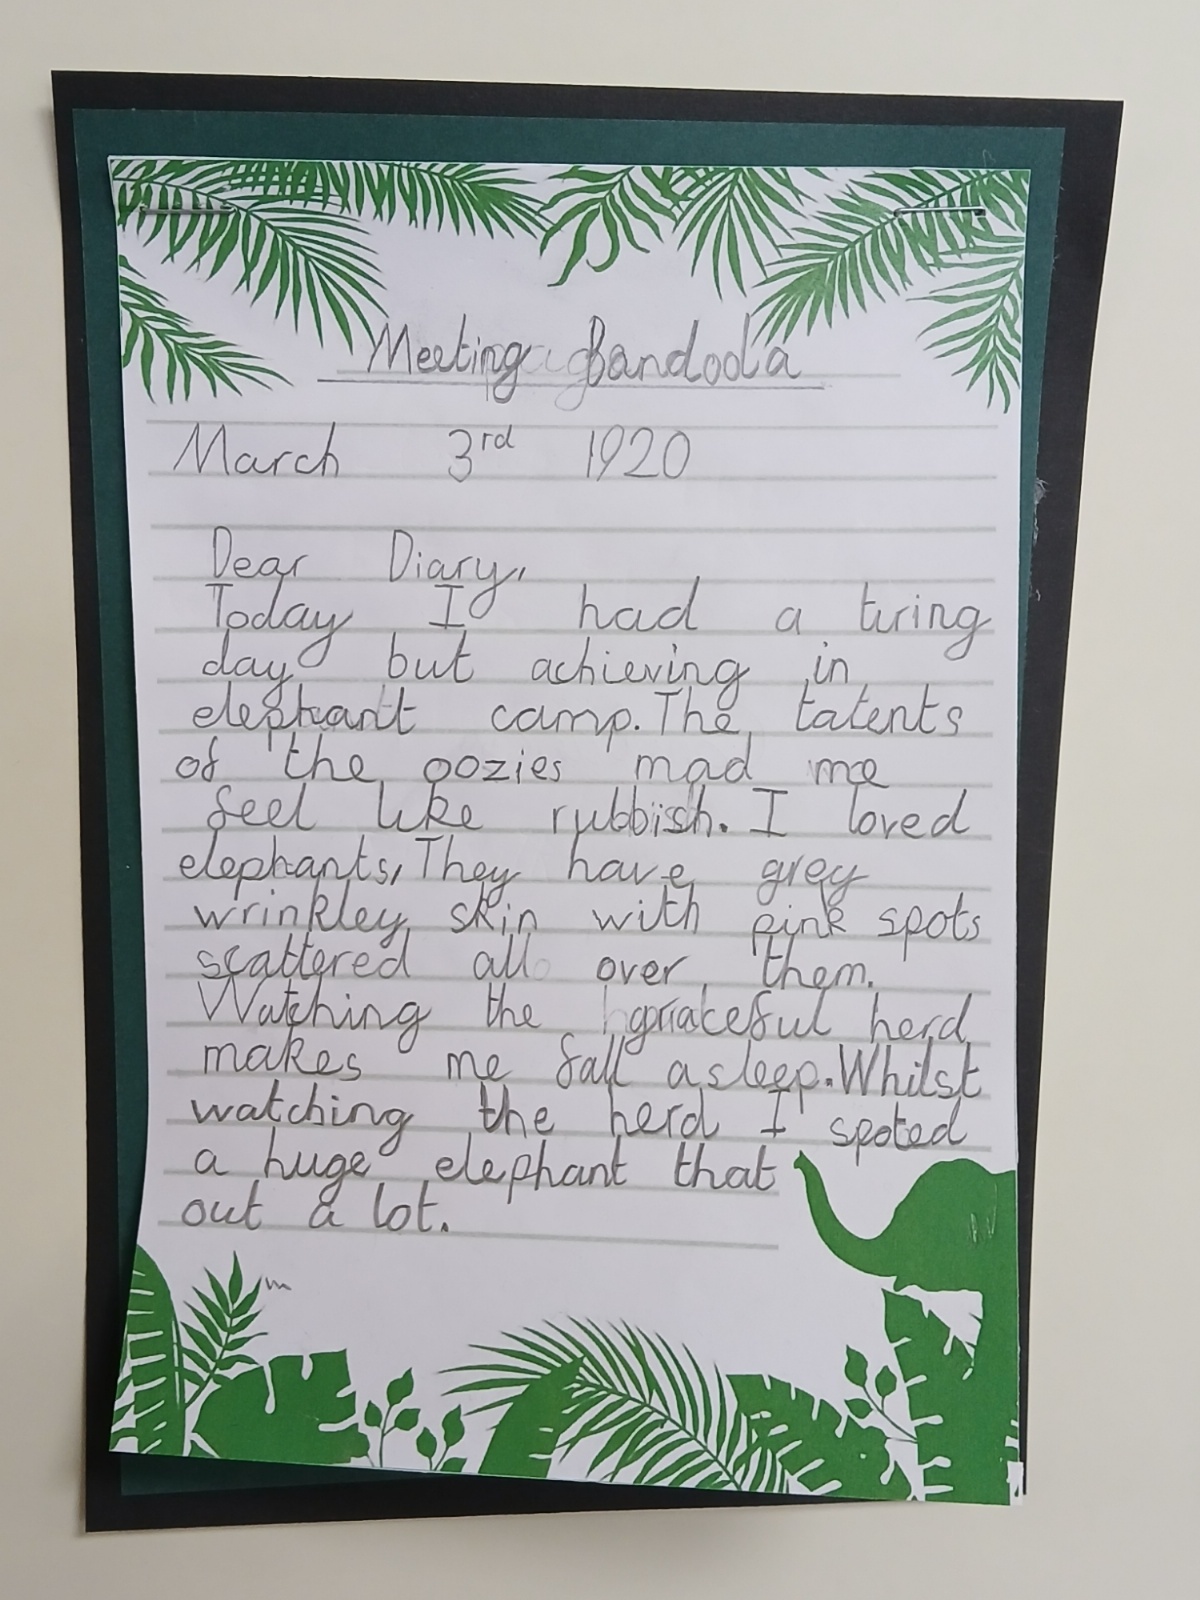 Meeting Bandoola
March 3rd 1920
Dear Diary,
Today I had a tiring
day but achieving in
elephant camp. The talents
of the oozies mad me
feel like rubbish. I loved
elephants, They have grey
wrinkley skin with pink spots
scattered all over them.
Watching the graceful herd
makes me fall asleep. Whilst
watching the herd I spoted
a huge elephant that
out a lot.